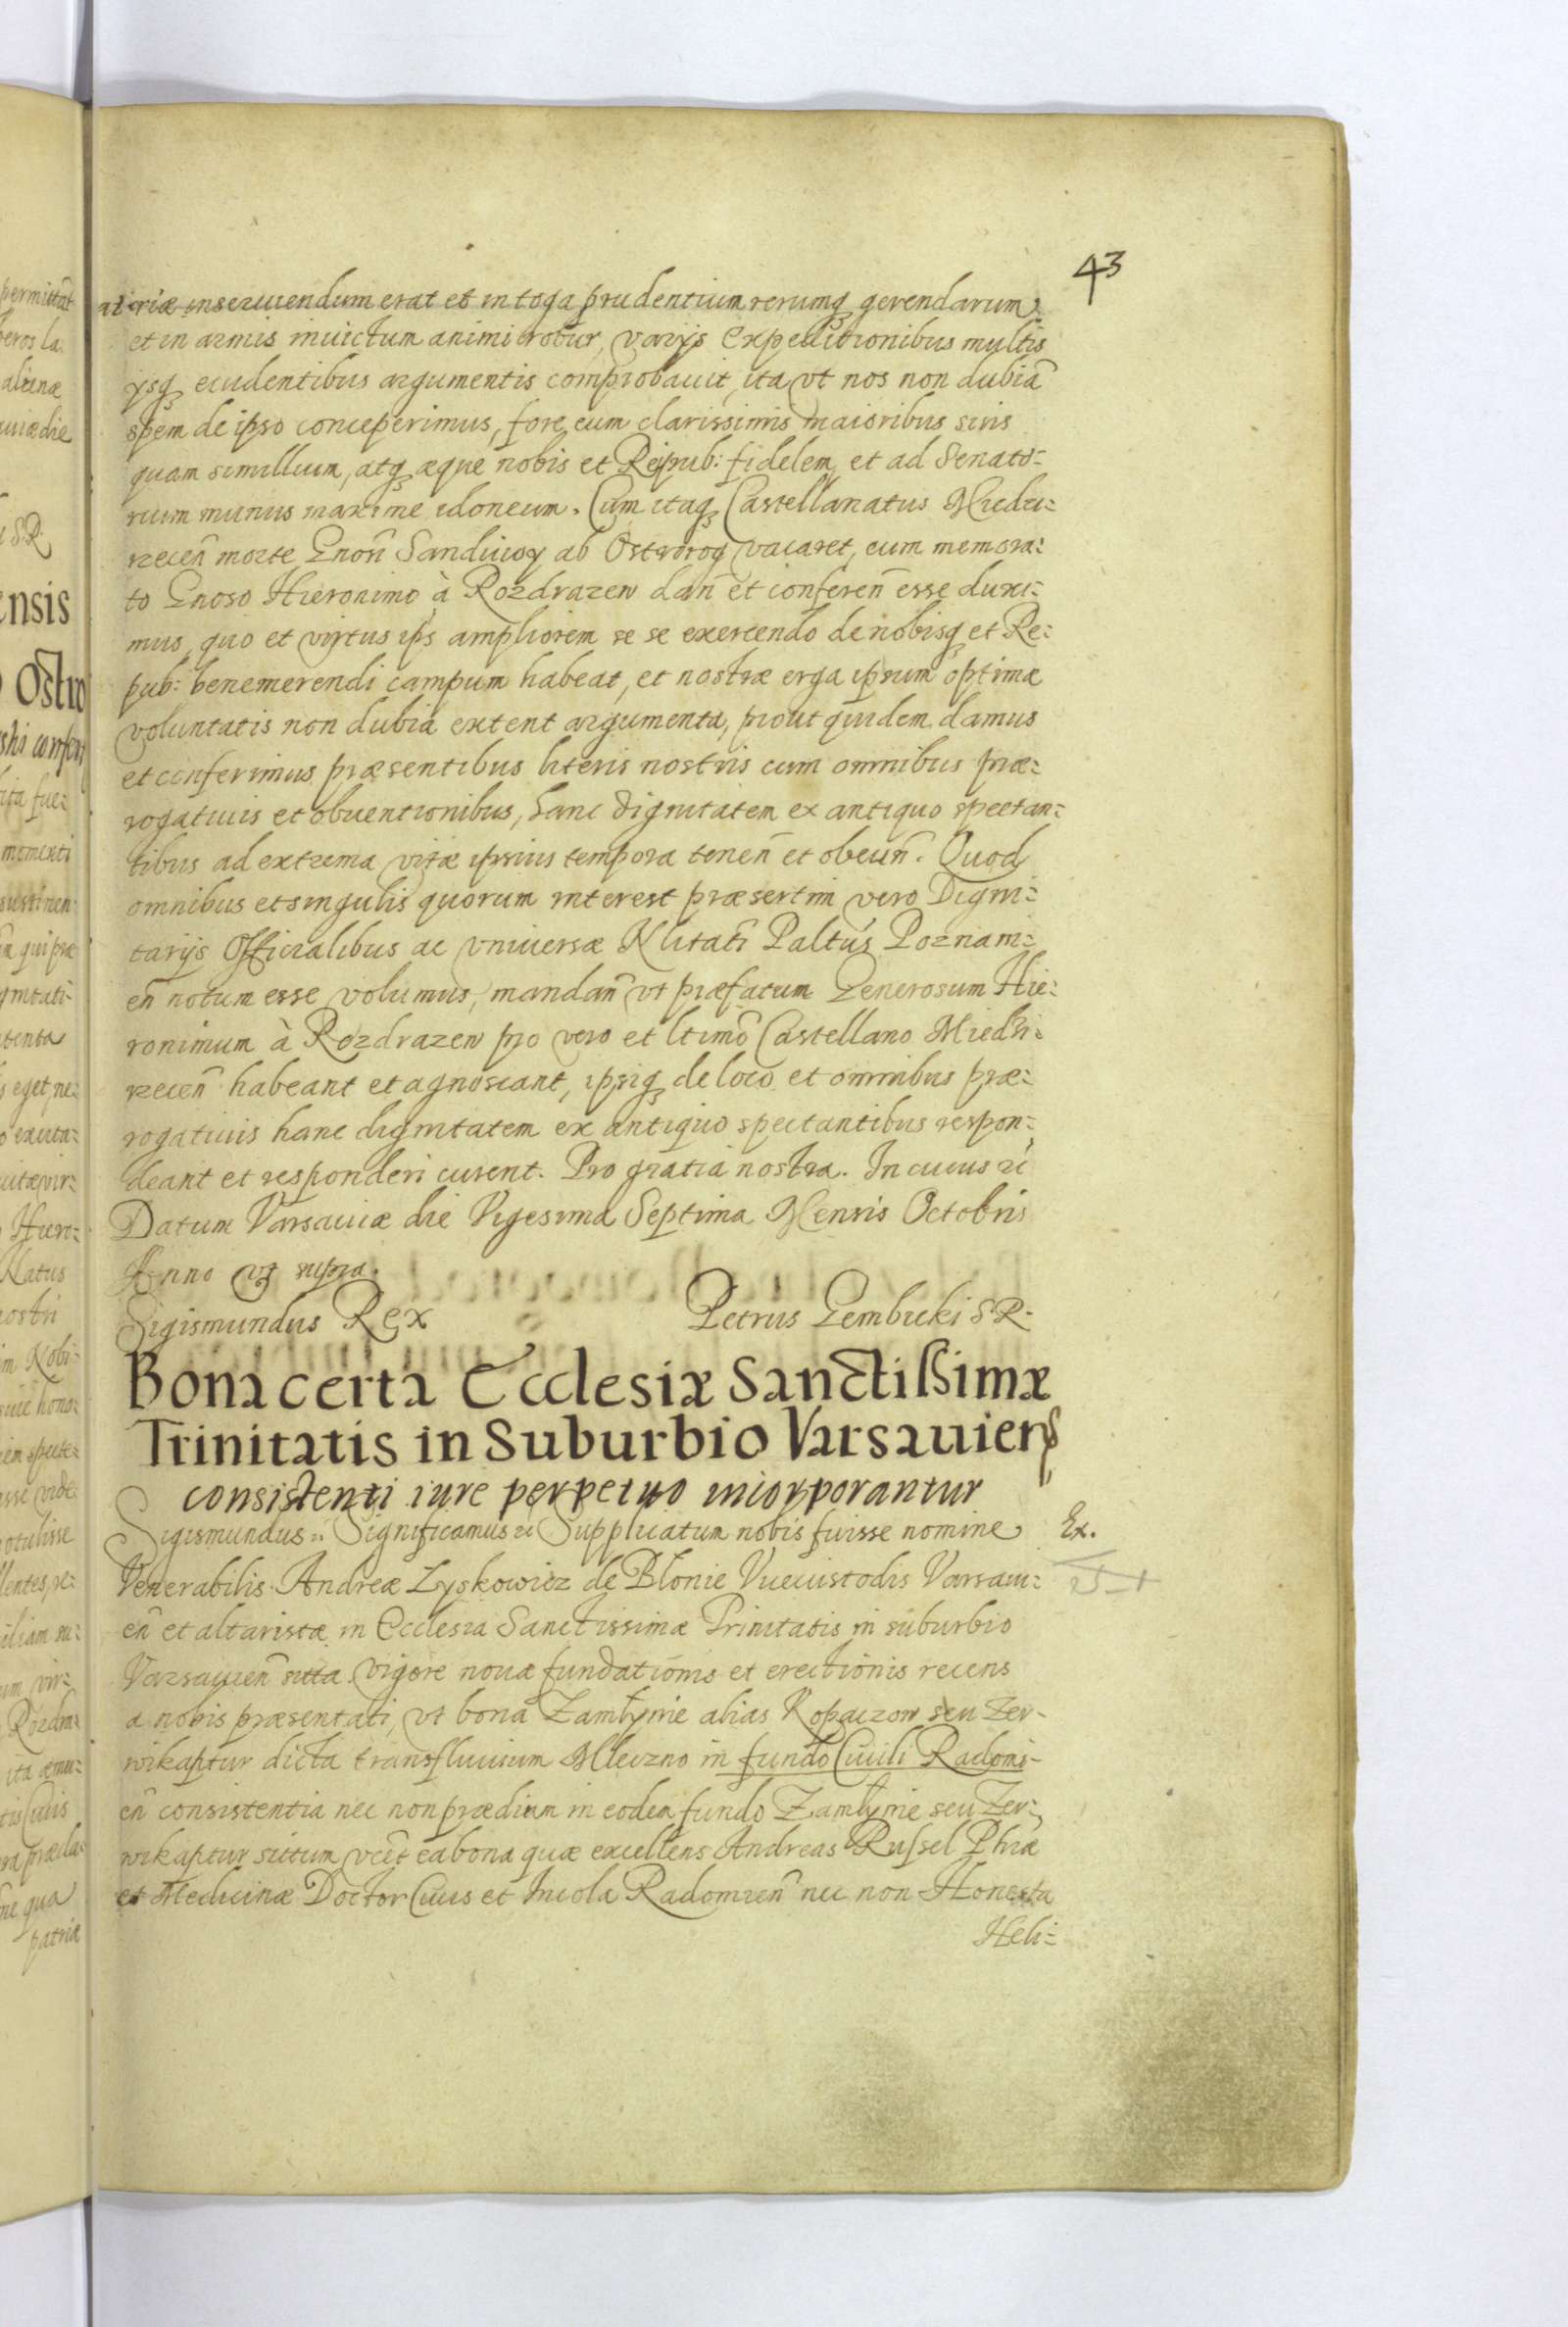 43
triæ inseruiendum erat et in toga prudentium rerumq gerendarum
et in armis inuictum animi robur, varijs expeditionibus multis
ysq euidentibus argumentis comprobauit, ita vt nos non dubiã
spem de ipso conceperimus, fore eum clarissimis maioribus suis
quam simillium, atq æque nobis et Reipub: fidelem et ad Senato=
rium munus maxime idoneum. Cum itaq Castellanatus Miedzi=
rzeceñ morte Gnosi Sandiuoy ab Ostrorog vacaret, eum memora=
to Gnoso Hieronimo à Rozdrazew dañ et confereñ esse duxi=
mus, quo et virtus ips ampliorem se se exercendo de nobisq et Re=
pub: benemerendi campum habeat, et nostræ erga ipsum optimæ
voluntatis non dubia extent argumenta, prout quidem damus
et conferimus præsentibus literis nostris cum omnibus præ=
rogatiuis et obuentionibus, hanc dignitatem ex antiquo spectan=
tibus ad extrema vitæ ipsius tempora teneñ et obeuñ. Quod
omnibus et singulis quorum interest præsertim vero Digni=
tarijs Officialibus ac vniuersæ Nlitati Paltus Poznani=
eñ notum esse volumus, mandañ vt præfatum Generosum Hie=
ronimum à Rozdrazew pro vero et ltimo Castellano Miedzi=
rzeceñ habeant et agnoscant, ipsiq de loco et omnibus præ=
rogatiuis hanc dignitatem ex antiquo spectantibus respon=
deant et responderi curent. Pro gratia nostra. In cuius rei
Datum Varsauiæ die Vigesima Septima Mensis Octobris
Anno vt supra.
Sigismundus Rex Petrus Gembicki S.R.
Bona certa Ecclesiæ Sanctissimæ
Trinitatis in Suburbio Varsauiens
consistenti iure perpetuo incorporantur
Sigismundus Significamus Supplicatum nobis fuisse nomine
Ex.
Venerabilis Andreæ Lyskowicz de Błonie Vicecustodis Varsaui=
eñ et altaristæ in Ecclesia Sanctissimæ Trinitatis in suburbio
Varsauieñ sitta vigore nouæ fundationis et erectionis recens
a nobis præsentati, vt bona Zamłynie alias Kopaczow seu Zer-
wikaptur dicta transfluuium Mleczno in fundo Ciuili Radomi-
eñ consistentia nec non prædium in eodem fundo Zamłynie seu Zer=
wikaptur situm, vcet ea bona quæ excellens Andreas Russel Phiæ
et Medicinæ Doctor Ciuis et Incola Radomieñ nec non Honesta
Heli=